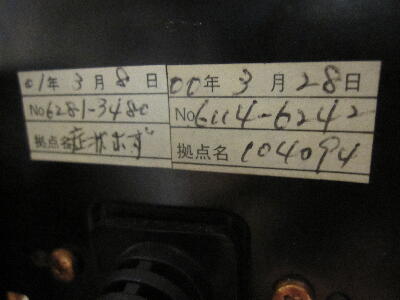 01年 3月 8日
No 6281-3480
拠点名 症状出ず
00年 3月 28日
No 6114-6242
拠点名 104094